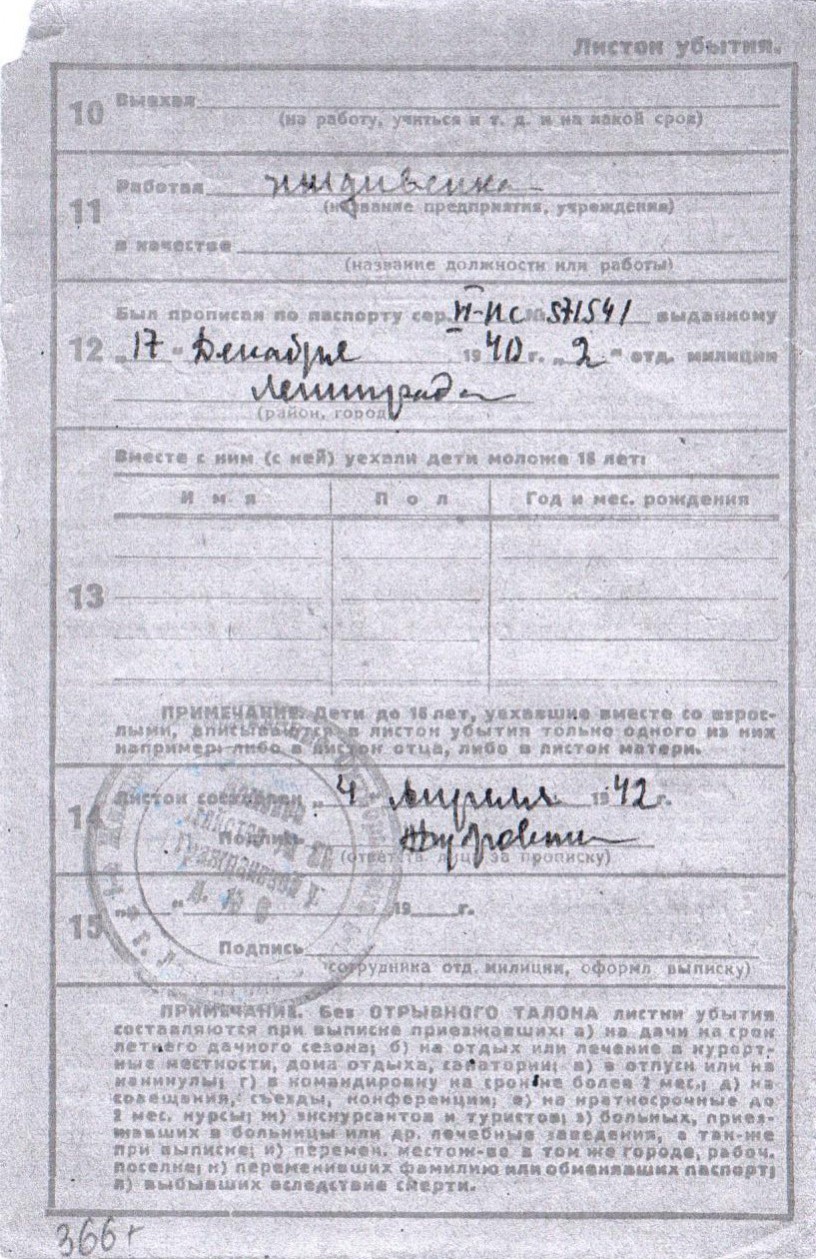 Листок убытия.
10 Выехал
(на работу, учиться и т. д. и на какой срок)
Работал иждивенка
11 (название предприятия, учреждения)
в качестве
(название должности или работы)
Был прописан по паспорту сер. № 571541 выданному
12 „17" Декабря 1940 г. „2" отд. милиции
Ленинграда
(район, город)
Вместе с ним (с ней) уехали дети моложе 16 лет:
Имя Пол Год и мес. рождения
13
ПРИМЕЧАНИЕ. Дети до 16 лет, уехавшие вместе со взрос-
лыми, вписываются в листок убытия только одного из них
например: либо в листок отца, либо в листок матери.
14 Листок составлен „4 Апреля 1942 г.
Подпись
(ответств. лица за прописку)
15 „ " 19 г.
Подпись
(сотрудника отд. милиции, оформл выписку)
ПРИМЕЧАНИЕ. Без ОТРЫВНОГО ТАЛОНА листки убытия
составляются при выписке приезжавших: а) на дачи на срок
летнего дачного сезона; б) на отдых или лечение в курорт-
ные местности, дома отдыха, санатории; в) в отпуск или на
каникулы; г) в командировку на срок не более 2 мес.; д) на
совещания, съезды, конференции; е) на краткосрочные до
2 мес. курсы; ж) экскурсантов и туристов; з) больных, приез-
жавших в больницы или др. лечебные заведения, а так-же
при выписке; и) перемен. местож-во в том же городе, рабоч.
поселке; к) переменивших фамилию или обменявших паспорт;
л) выбывших вследствие смерти.
366 г